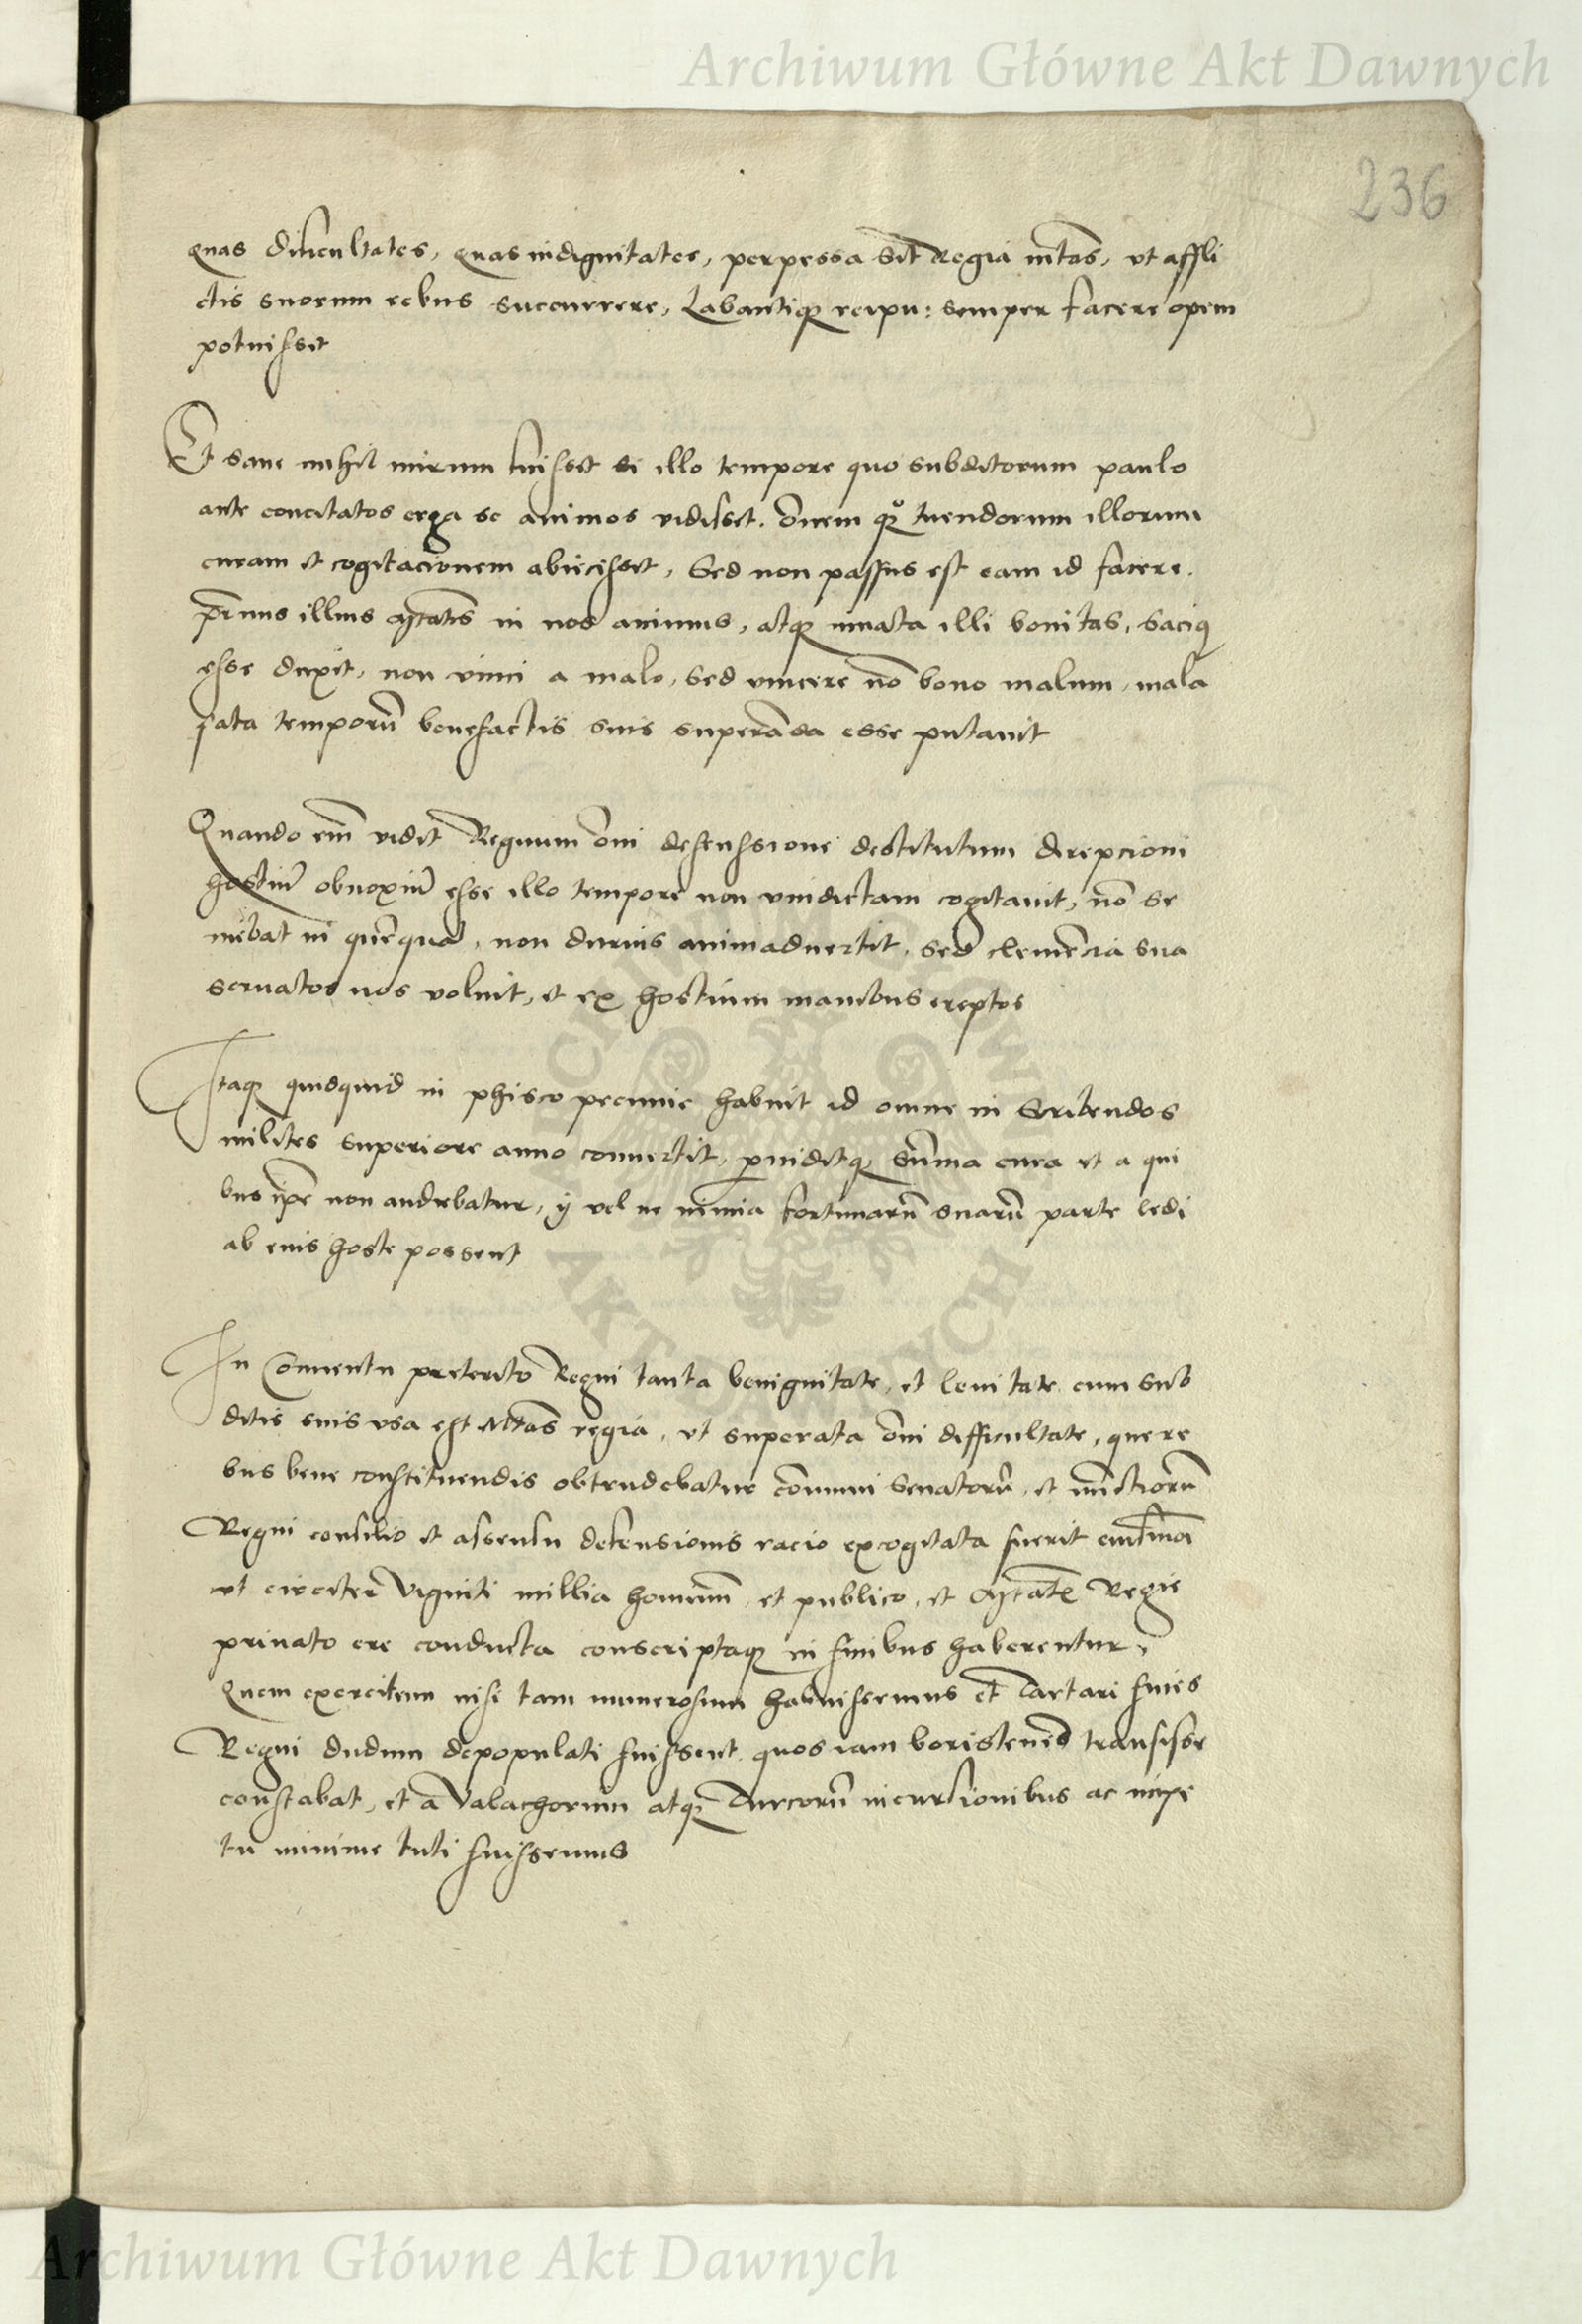 Archiwum Główne Akt Dawnych
236
quas difficultates, quas indignitates, perpessa sit Regia mtas, ut affli
ctis suorum rebus succurrere, Labantiqꝫ reipu: semper facere opem
potuisset
Et sane nihil mirum fuisset si illo tempore quo subditorum paulo
ante concitatos erga se animos vidisset. õnem qͦꝫ tuendorum illorum
curam et cogitacionem abiecisset, Sed non passus est eam id facere.
illius Mtatis in nos animus, atqꝫ innata illi bonitas, saciꝰ
esse duxit, non vinci a malo, sed vincere bono malum, mala
fata temporũ benefactis suis superãda esse putavit
Quando em̃ vidit Regnum õni defenssione destitutum direpcioni
hostiũ obnoxiũ esse illo tempore non vindictam cogitavit, nõ se
in quẽquã, non durius animadvertit, sed clemẽcia sua
servatos nos voluit, et ex hostium manibus ereptos
Itaqꝫ quidquid in phisco pecunie habuit id omne in scribendos
milites superiore anno convertit, pviditqꝫ sũma cura et a qui
bus ipẽ non audiebatur, ij vel ne nimia fortunarũ suarũ parte ledi
ab hoste possent
In Conventu preterito Regni tanta benignitate, et lenitate cum sub
ditis suis usa est Mtas regia, ut superata õni difficultate, que re
bus bene constituendis obtrudebatur cõmuni Senatorũ, et nũctiorũ
Regni consilio et assensu defensionis racio excogitata fuerit
ut circiter viginti millia hominũ, et publico, et Mtatis Regie
privato ere conducta conscriptaqꝫ in finibus haberentur,
Quem exercitum nisi tam numerosum habuissemus et Tartari fines
Regni dudum depopulati fuissent quos iam boristenẽ transisse
constabat, et a Valachorum atqꝫ Turcorũ incursionibus ac impe
tu minime tuti fuissemus
Archiwum Główne Akt Dawnych